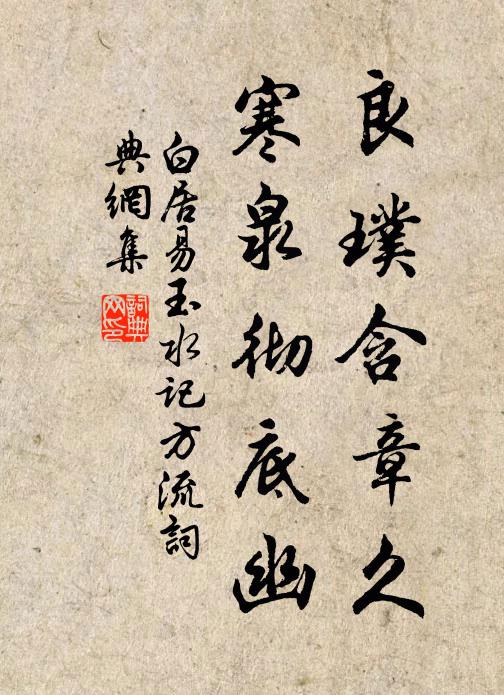 良璞含章久
寒泉彻底幽
白居易玉水记方流詞
典網集
詞典網印